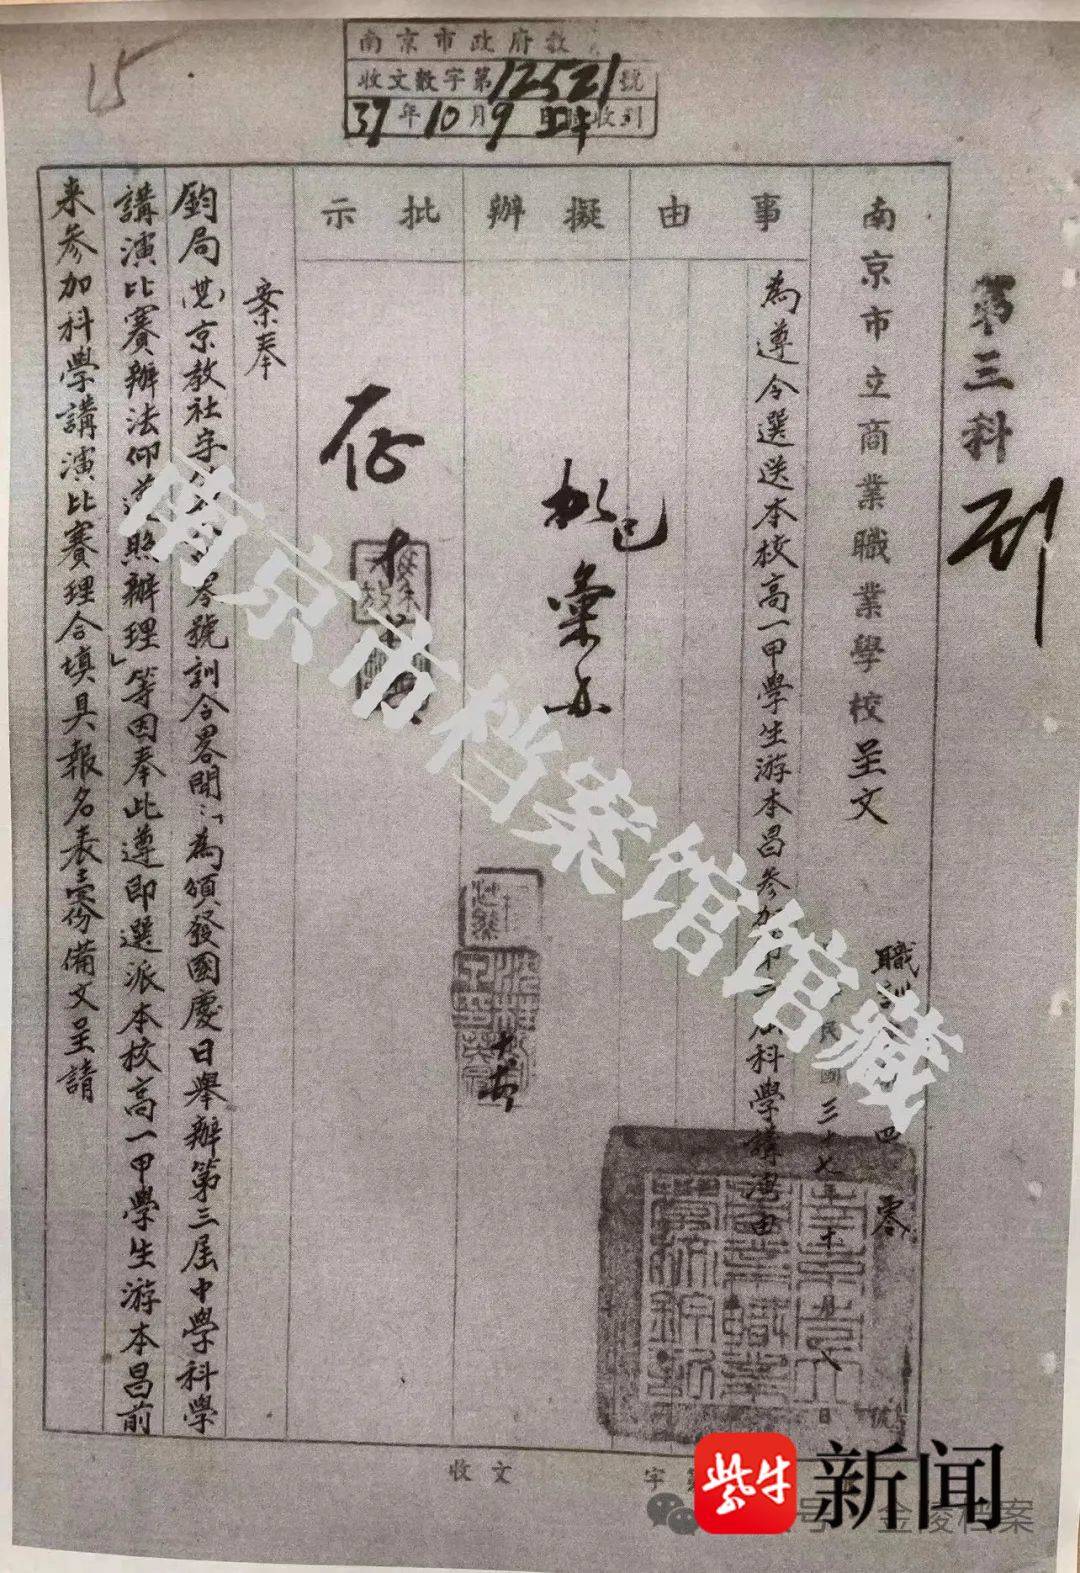 15
南京市政府教
收文數字第12521號
37年10月9日 收到
第三科
南京市立商業職業學校呈文
職訓 四 零
民國三十七年十月八日
事由
為遵令選送本校高一甲學生游本昌參加第三屆科學講演由
擬辦
批示
存
案奉
鈞局 京教社字 號訓令畧開:「為頒發國慶日舉辦第三屆中學科學
講演比賽辦法仰遵照辦理」等因奉此遵即選派本校高一甲學生游本昌前
來參加科學講演比賽理合填具報名表壹份備文呈請
收文
字第
南京市档案馆馆藏
紫牛
新闻
号
金陵档案